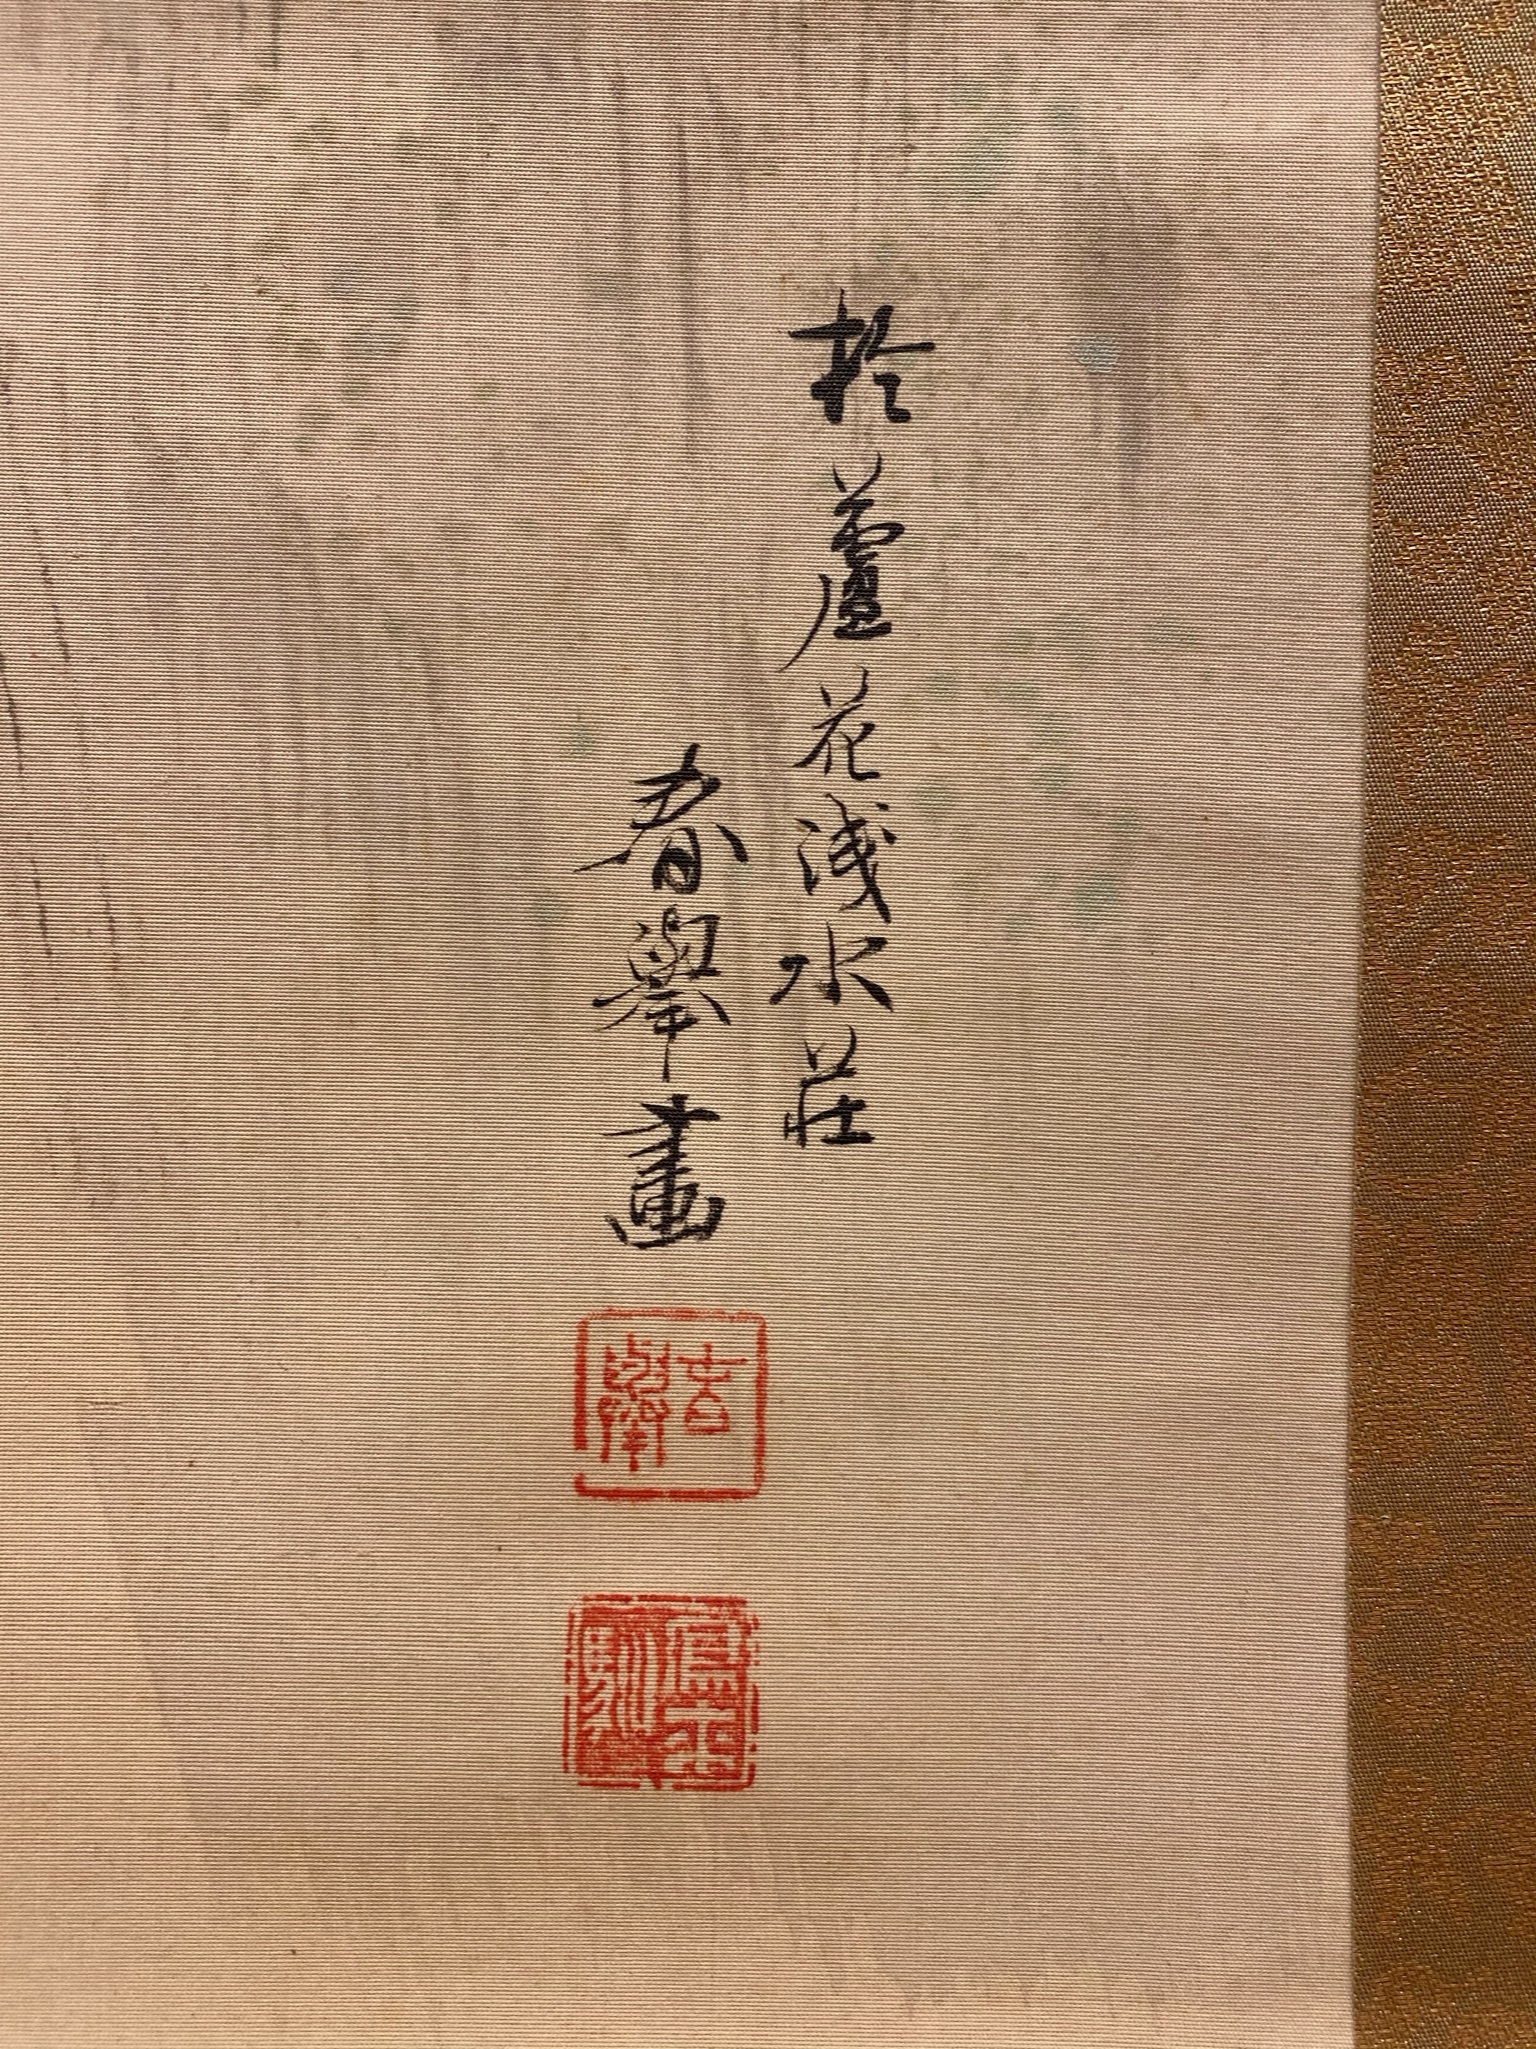 於蘆花浅水荘
春擧畫